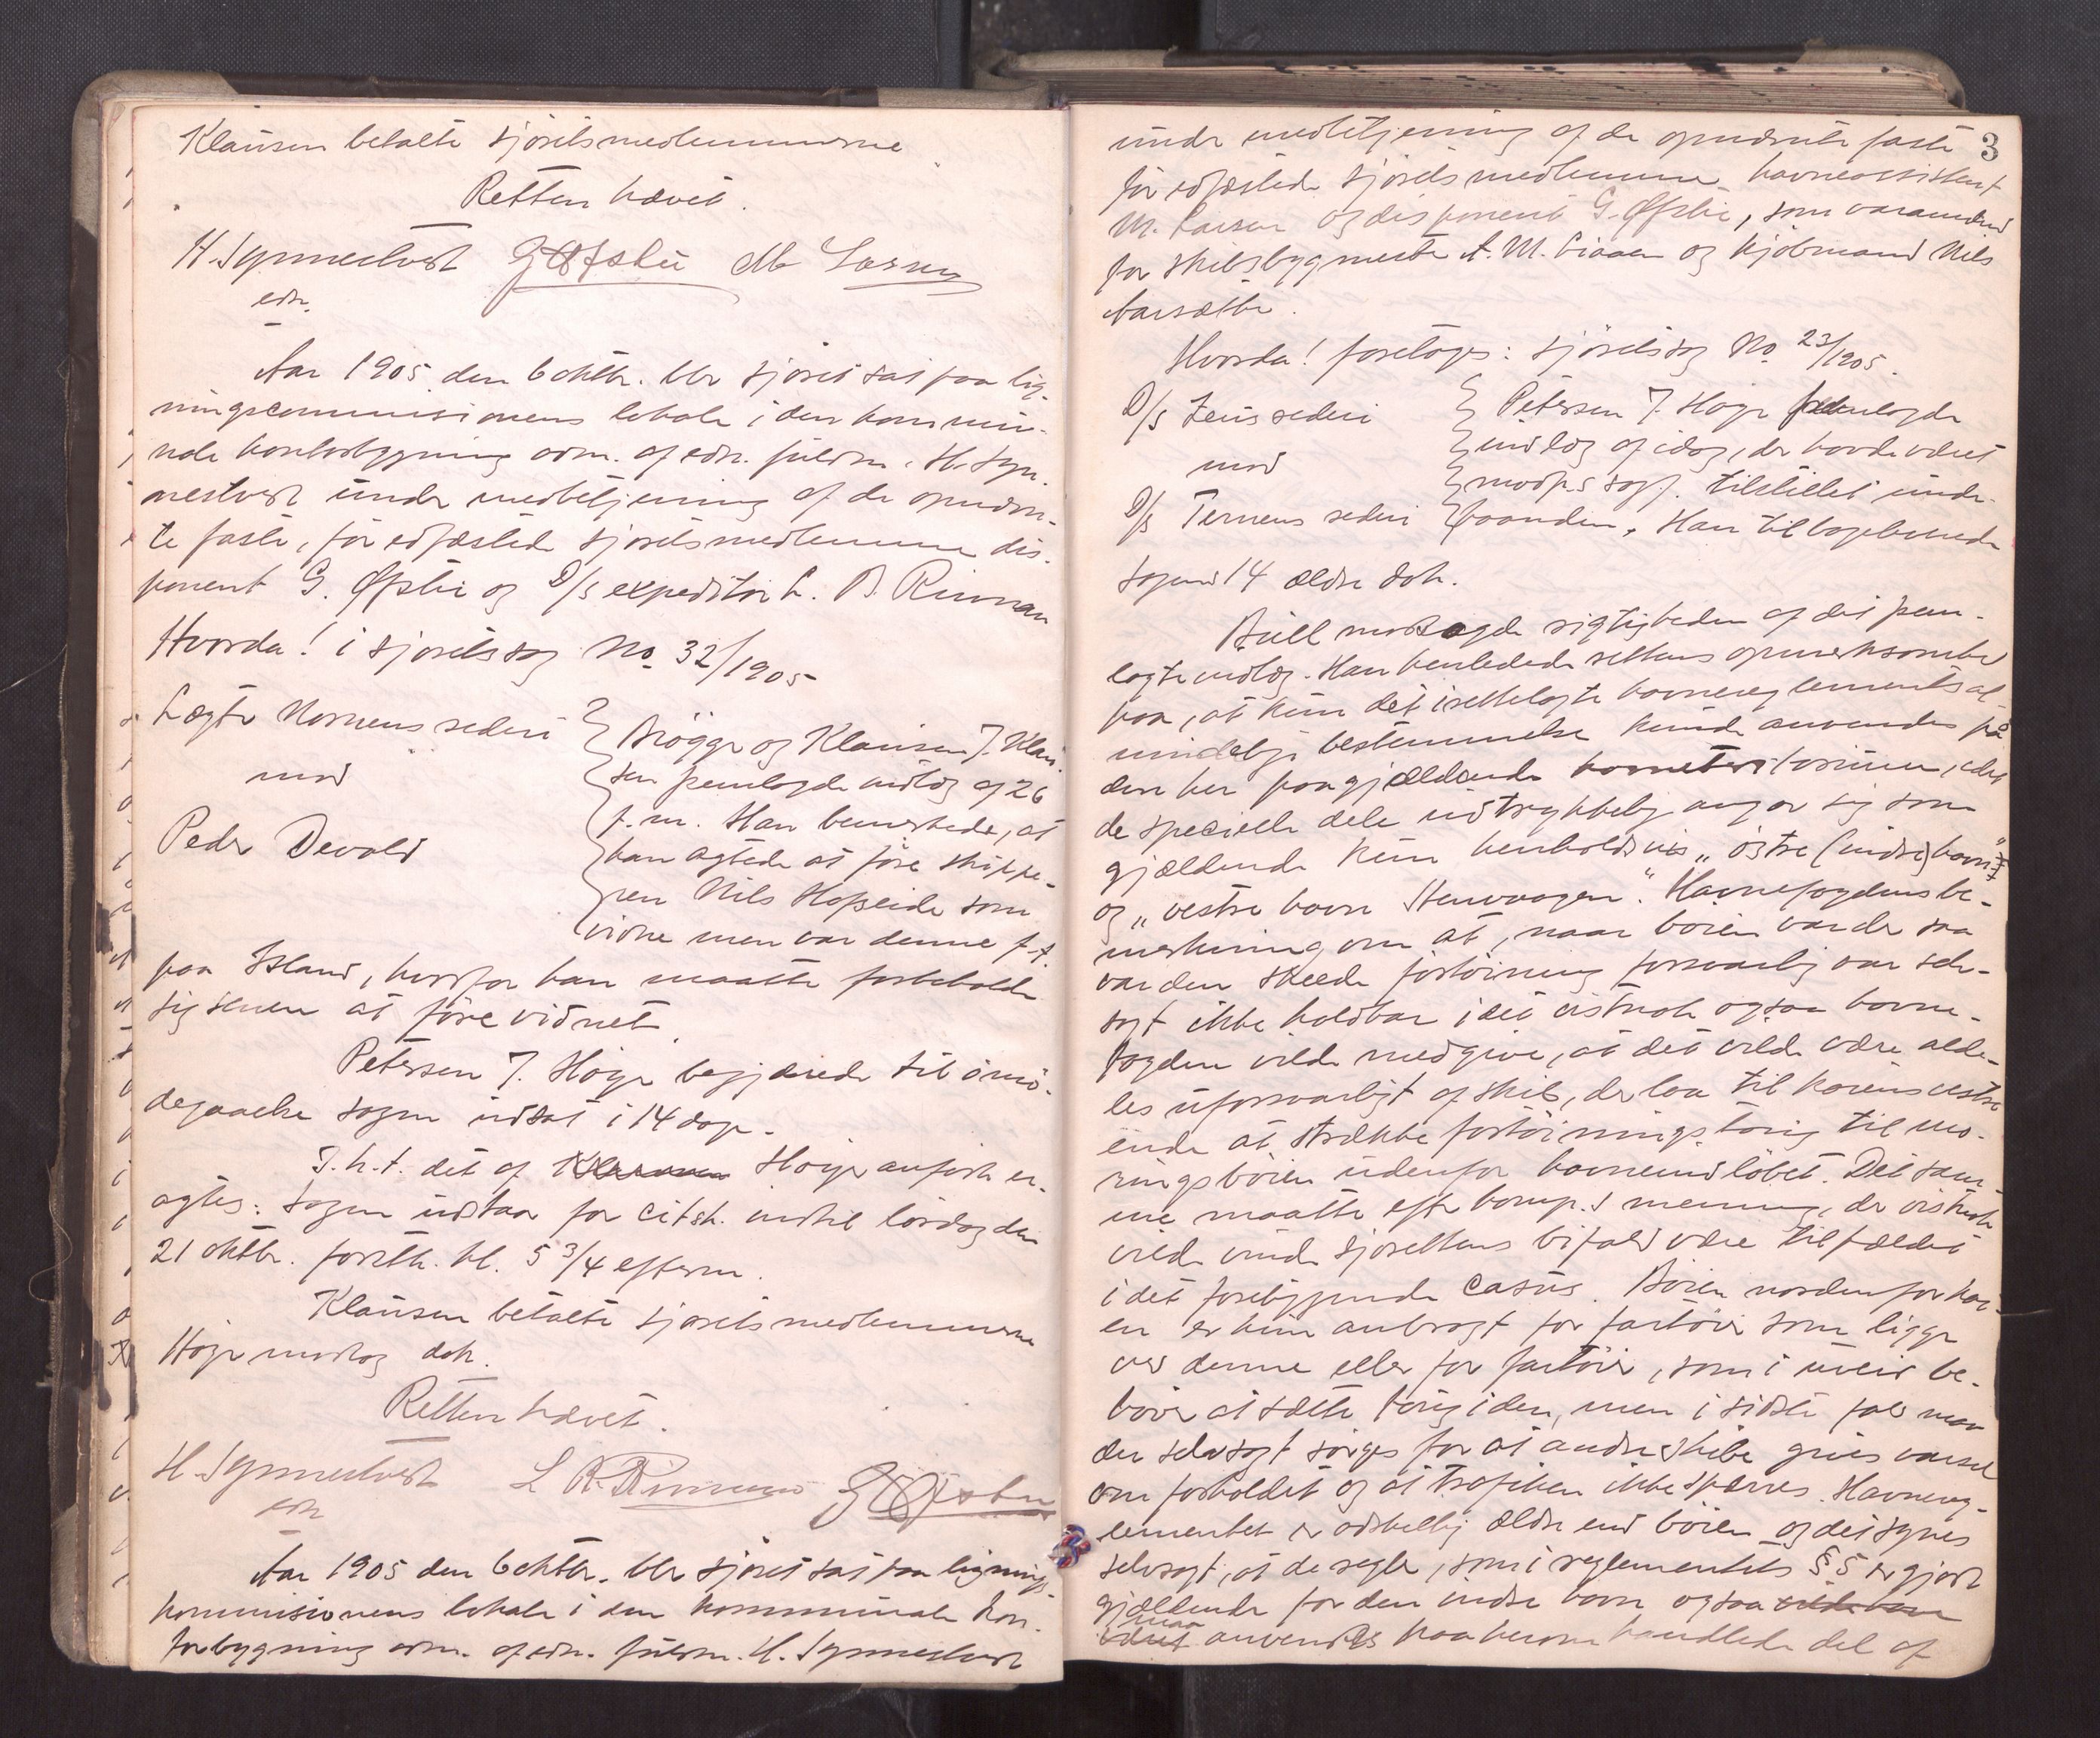 Klausen betalte sjøretsmedlemmerne
Retten hævet.
H. Synnestvedt G Øfsthie M Larsen
edn.
Aar 1905 den 6 oktbr. blev sjøret sat paa lig-
ningscommissionens lokale i den kommu-
nale kontorbygning adm. af edn. fuldm. H. Syn-
nestvedt under medbetjening af de opnævn-
te faste, før edfæstede sjøretsmedlemmer dis-
ponent G. Øfsthie og D/S expeditør L. B. Rinnan
Hvorda! i sjøretssag No. 32/1905
Lægter Nornens rederi
mod
Peder Devold
Brögger og Klausen J. Klau-
sen fremlagde indlæg af 26
f.m. Han bemerkede, at
han agtede at føre skippe-
ren Nils Hopseide som
vidne men var denne f.t.
paa Island, hvorfor han maatte forbeholde
sig senere at føre vidnet.
Petersen J. Höyer begjærede til imö-
degaaelse sagen udsat i 14 dage.
I.h.t. det af Höyer anførte er-
agtes: Sagen udstaar for cit. sk. indtil lördag den
21 oktbr. førstk. kl. 5 3/4 efterm.
Klausen betalte sjøretsmedlemmerne
Höyer modtog dok.
Retten hævet.
H. Synnestvedt L B. Rinnan G Øfsthie
edn
Aar 1905 den 6 oktbr. blev sjøret sat paa lignings-
kommissionens lokale i den kommunale kon-
torbygning adm. af edn. fuldm. H. Synnestvedt
3
under medbetjening af de opnævnte faste
før edfæstede sjøretsmedlemmer havneassistent
M. Larsen og disponent G. Øfsthie, som varamænd
for skibsbygmester A. M. Liaaen og kjøbmand Nils
Aarsæther.
Hvorda! foretoges: sjøretssag No. 23/1905.
D/S Zeus rederi
mod
D/S Ternens rederi
Petersen J. Höyer fremlagde
indlæg af idag, der havde været
modp.s sagf. tilstillet under-
haanden. Han tilbageleverede
sagens 14 ældre dok.
Büll modsagde rigtigheden af det frem-
lagte indlæg. Han henledede rettens opmerksomhed
paa, at kun det iretteLagte havnereglements al-
mindelige bestemmelser kunde anvendes på
den her paagjældende havneterritorium, idet
de specielle dele udtrykkelig angav sig som
gjældende kun henholdsvis "östre (indre) havn"
og "vestre havn Stenvaagen". Havnefogdens be-
merkning om at, naar böien var der saa
var den skeede fortöining forsvarlig var selv-
sagt ikke holdbar idet vistnok ogsaa havne-
fogden vilde medgive, at det vilde være alde-
les uforsvarligt af skib, der laa til kaiens vestre
ende at strække fortöiningstaug til mo-
ringsböien udenfor havneindlöbet. Det sam-
me maatte efter komp.s mening, der vistnok
vilde vinde sjørettens bifald være tilfældet
i det foreliggende casus. Böien nordenfor kai-
en er kun anbragt for fartöier som ligger
ved denne eller for fartöier, som i uveir be-
höver at sætte taug i den, men i sidste fald maa
der selvsagt sörges for at andre skibe gives varsel
om forholdet og at trafiken ikke spærres. Havnereg-
lementet er adskillig ældre end böien og det synes
selvsagt, at de regler, som i reglementets § 5 er gjort
gjældende for den indre havn ogsaa
maa anvendes paa herom handlede del af